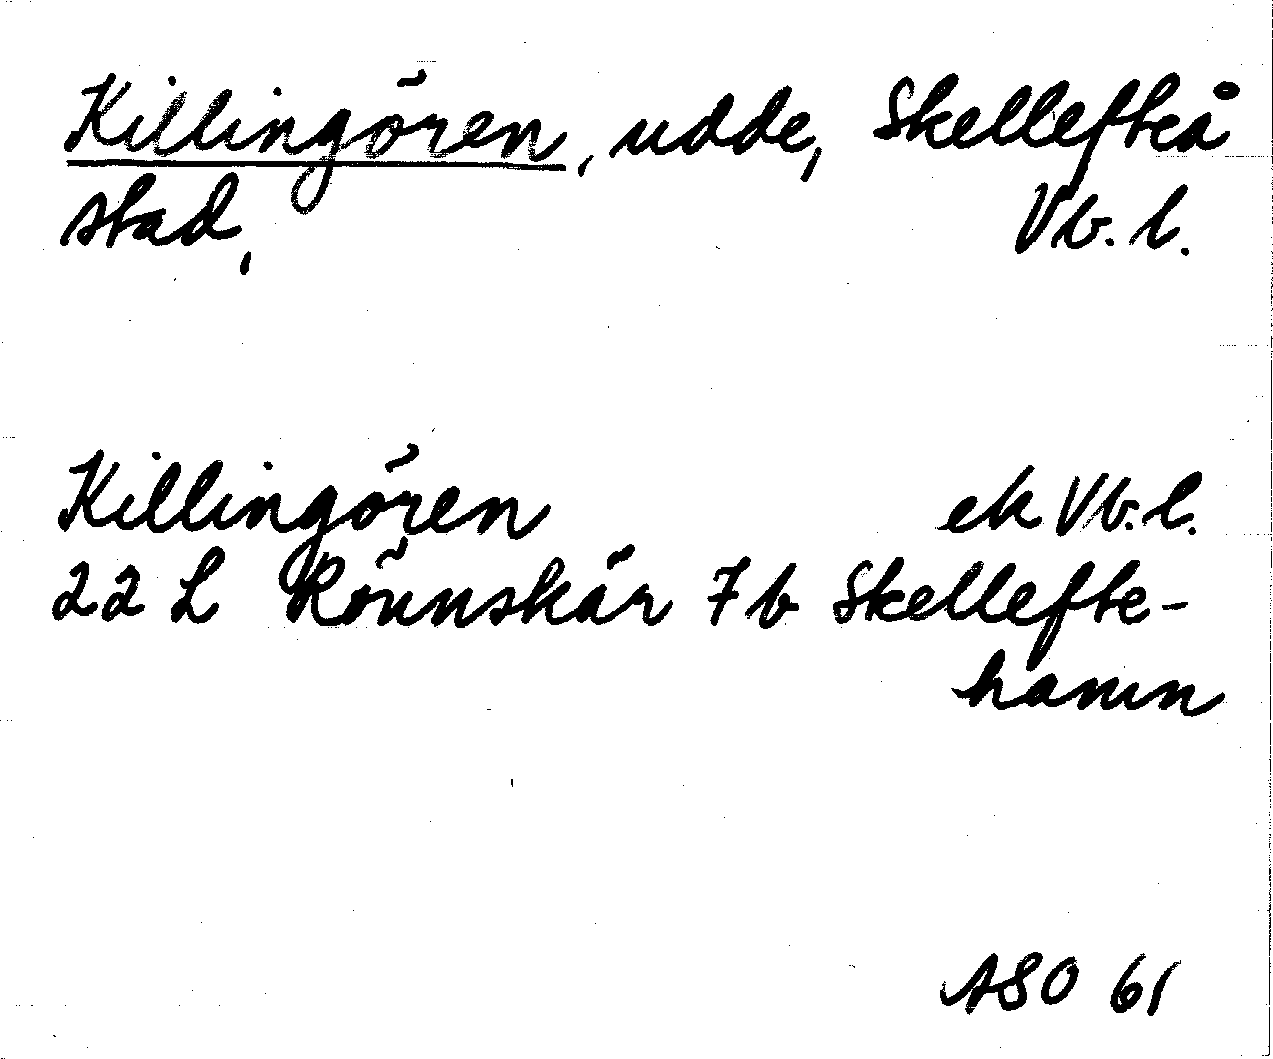 Killingören, udde, Skellefteå
stad, Vb. l.
Killingören ek Vb. l.
22 L Rönnskär 7b Skellefte-
hamn
ASO 61